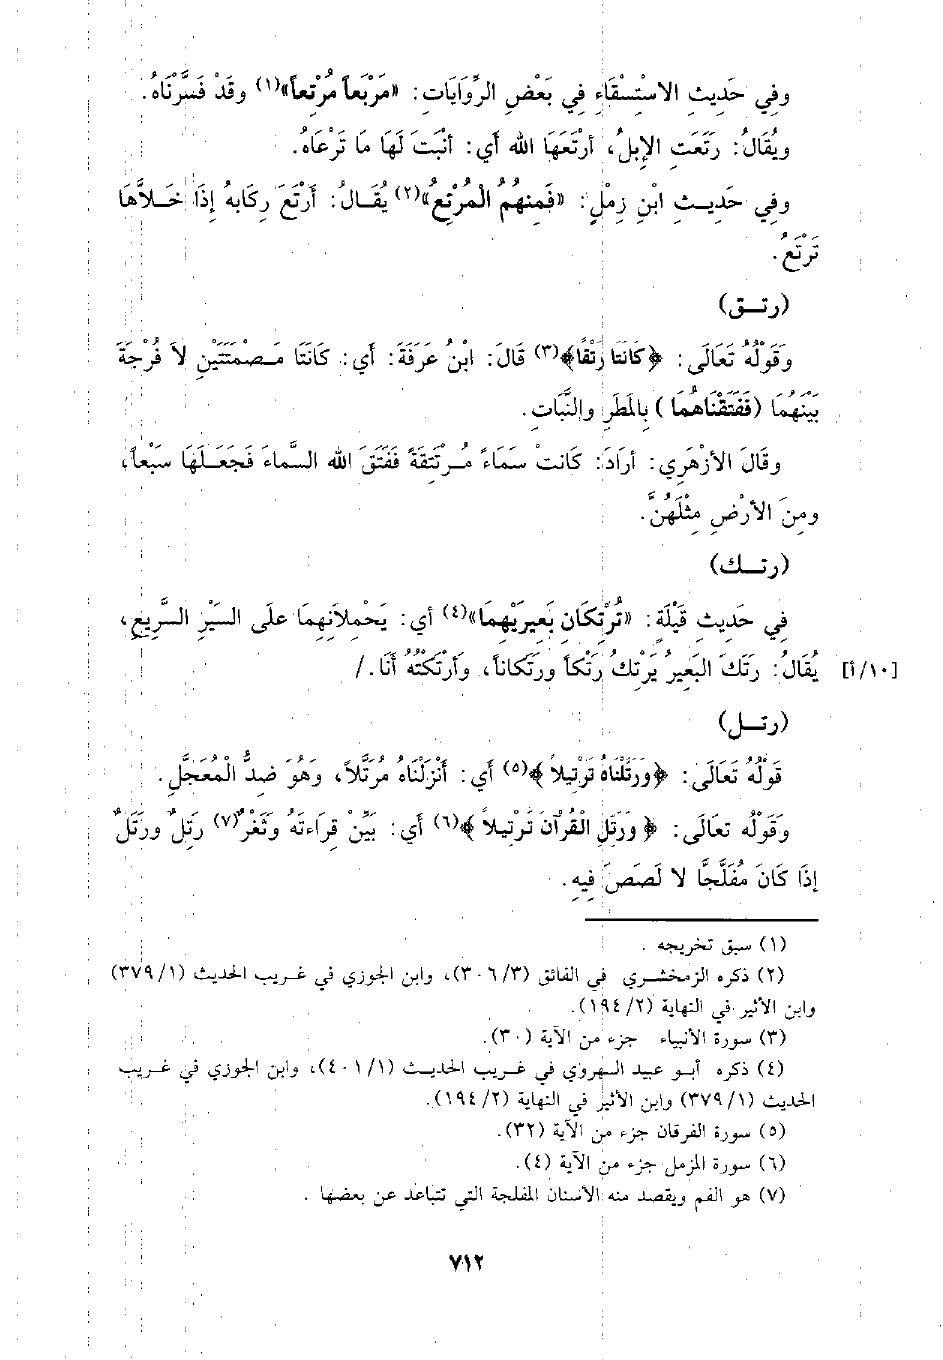 وفِي حَدِيثِ الاسْتِسْقَاءِ فِي بَعْضِ الرِّوَايَاتِ: «مَرْبَعاً مُرْتِعاً»(١) وقَدْ فَسَّرْنَاهُ.
ويُقَالُ: رَتَعَتِ الإبِلُ، أرْتَعَهَا الله أي: أنْبَتَ لَهَا مَا تَرْعَاهُ.
وفِي حَدِيثِ ابْنِ زِمْلٍ: «فَمِنْهُمُ الْمُرْتِعُ»(٢) يُقَالُ: أرْتَعَ رِكَابهُ إذَا خَلاَّهَا
تَرْتَعُ.
(رتق)
وَقَوْلُهُ تَعَالَى: ﴿كَانَتَا رَتْقًا﴾(٣) قَالَ: ابْنُ عَرَفَةَ: أي: كَانَتَا مَصْمَتَتَيْنِ لاَ فُرْجَةَ
بَيْنَهُمَا (فَفَتَقْنَاهُمَا) بِالمَطَرِ والنَّبَاتِ.
وقَالَ الأزْهَرِي: أرَادَ: كَانتْ سَمَاءً مُرْتَتِقَةً فَفَتَقَ الله السَّماءَ فَجَعَلَهَا سَبْعاً،
ومِنَ الأرْضِ مِثْلَهُنَّ.
(رتك)
فِي حَدِيثِ قَيْلَةٍ: «تُرْتِكَانِ بَعِيرَيْهِمَا»(٤) أي: يَحْمِلاَنِهِمَا علَى السَيْرِ السَّرِيعِ،
يُقَالُ: رَتَكَ البَعِيرُ يَرْتِكُ رَتْكاً ورَتَكاناً، وَأرْتَكْتُه أنَا./ [١٠/أ]
(رتل)
قَوْلُهُ تَعَالَى: ﴿وَرَتَّلْنَاهُ تَرْتِيلاً﴾(٥) أي: أنْزَلْنَاهُ مُرَتَّلاً، وَهُوَ ضِدُّ الْمُعَجَّلِ.
وَقَوْلُه تعَالَى: ﴿وَرَتِّلِ الْقُرْآنَ تَرْتِيلاً﴾(٦) أي: بَيِّنْ قِرَاءَتَهُ وثَغْرٌ(٧) رَتِلٌ ورَتَلٌ
إذَا كَانَ مُفَلَّجًا لا لَصَصَ فِيهِ.
(١) سبق تخريجه .
(٢) ذكره الزمخشري في الفائق (٣/٣٠٦)، وابن الجوزي في غريب الحديث (١/٣٧٩)
وابن الأثير في النهاية (٢/١٩٤).
(٣) سورة الأنبياء جزء من الآية (٣٠).
(٤) ذكره أبو عبيد الهروي في غريب الحديث (١/٤٠١)، وابن الجوزي في غريب
الحديث (١/٣٧٩) وابن الأثير في النهاية (٢/١٩٤).
(٥) سورة الفرقان جزء من الآية (٣٢).
(٦) سورة المزمل جزء من الآية (٤).
(٧) هو الفم ويقصد منه الأسنان المفلجة التي تتباعد عن بعضها .
٧١٢